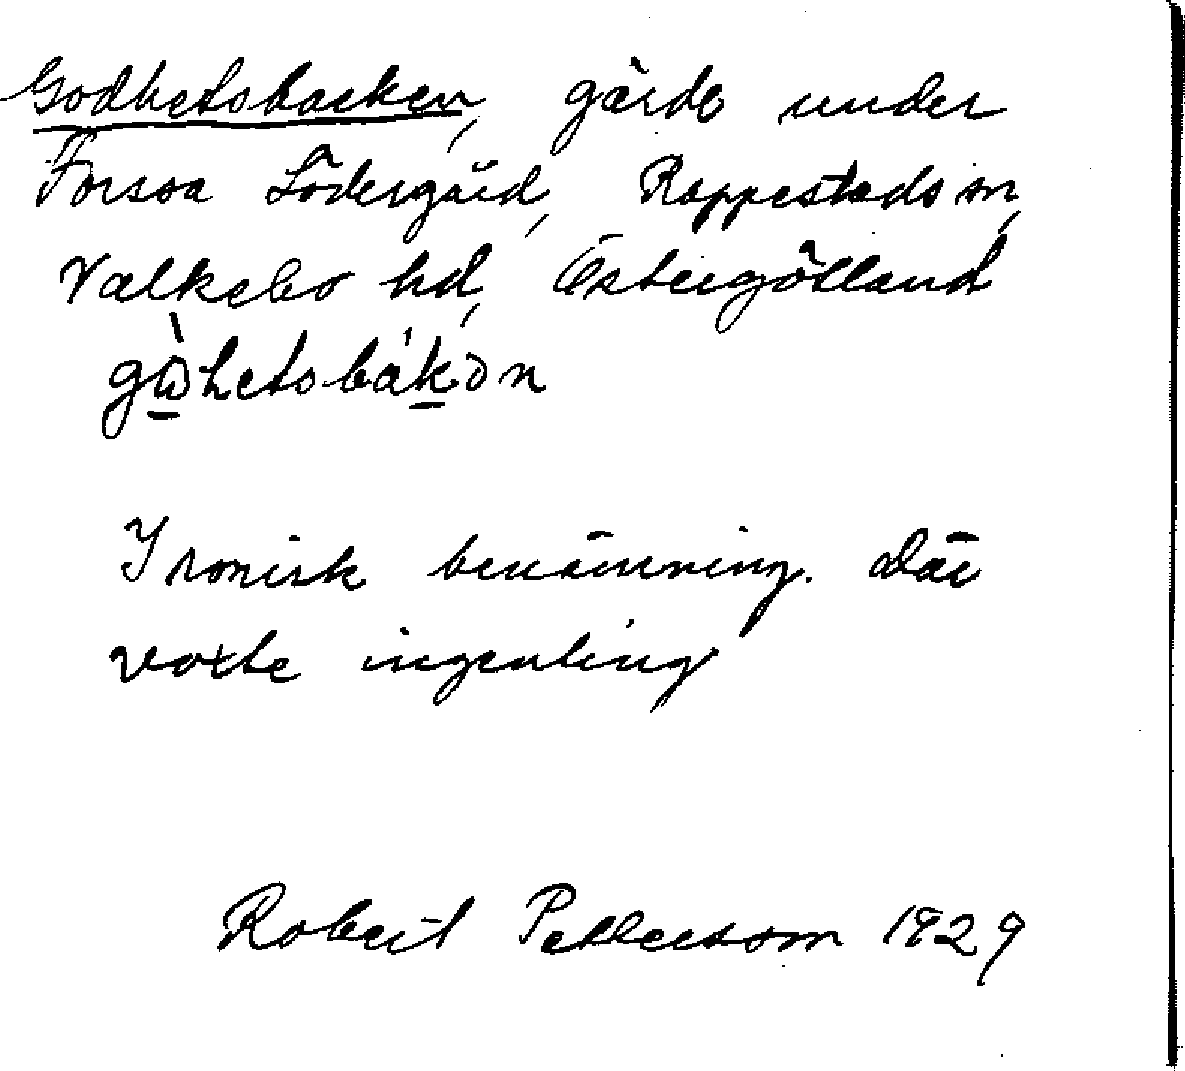 Godhetsbacken, gärde under
Forssa Södergård, Rappestads sn,
Valkebo hd, Östergötland
gὼhetsbák̠ən
Ironisk benämning. Där
växte ingenting
Robert Pettersson 1929